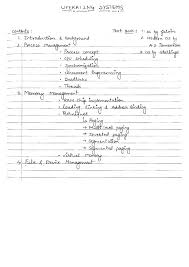 OPERATING SYSTEMS
Contents :
Text Book : 1. OS by Galvin
1. Introduction & background
2. Modern OS by
2. Process Management
A.S Tanenbaum
• Process concept
3. OS by Stallings
• CPU scheduling
• Synchronization
• Concurrent Programming
• Deadlocks
• Threads
3. Memory Management
Implementation
• Loading, Linking & Address Binding
• Techniques
↳ Paging
↳ Multilevel paging
↳ Inverted paging
↳ Segmentation
↳ Segmented paging
• Virtual memory
4. File & Device Management